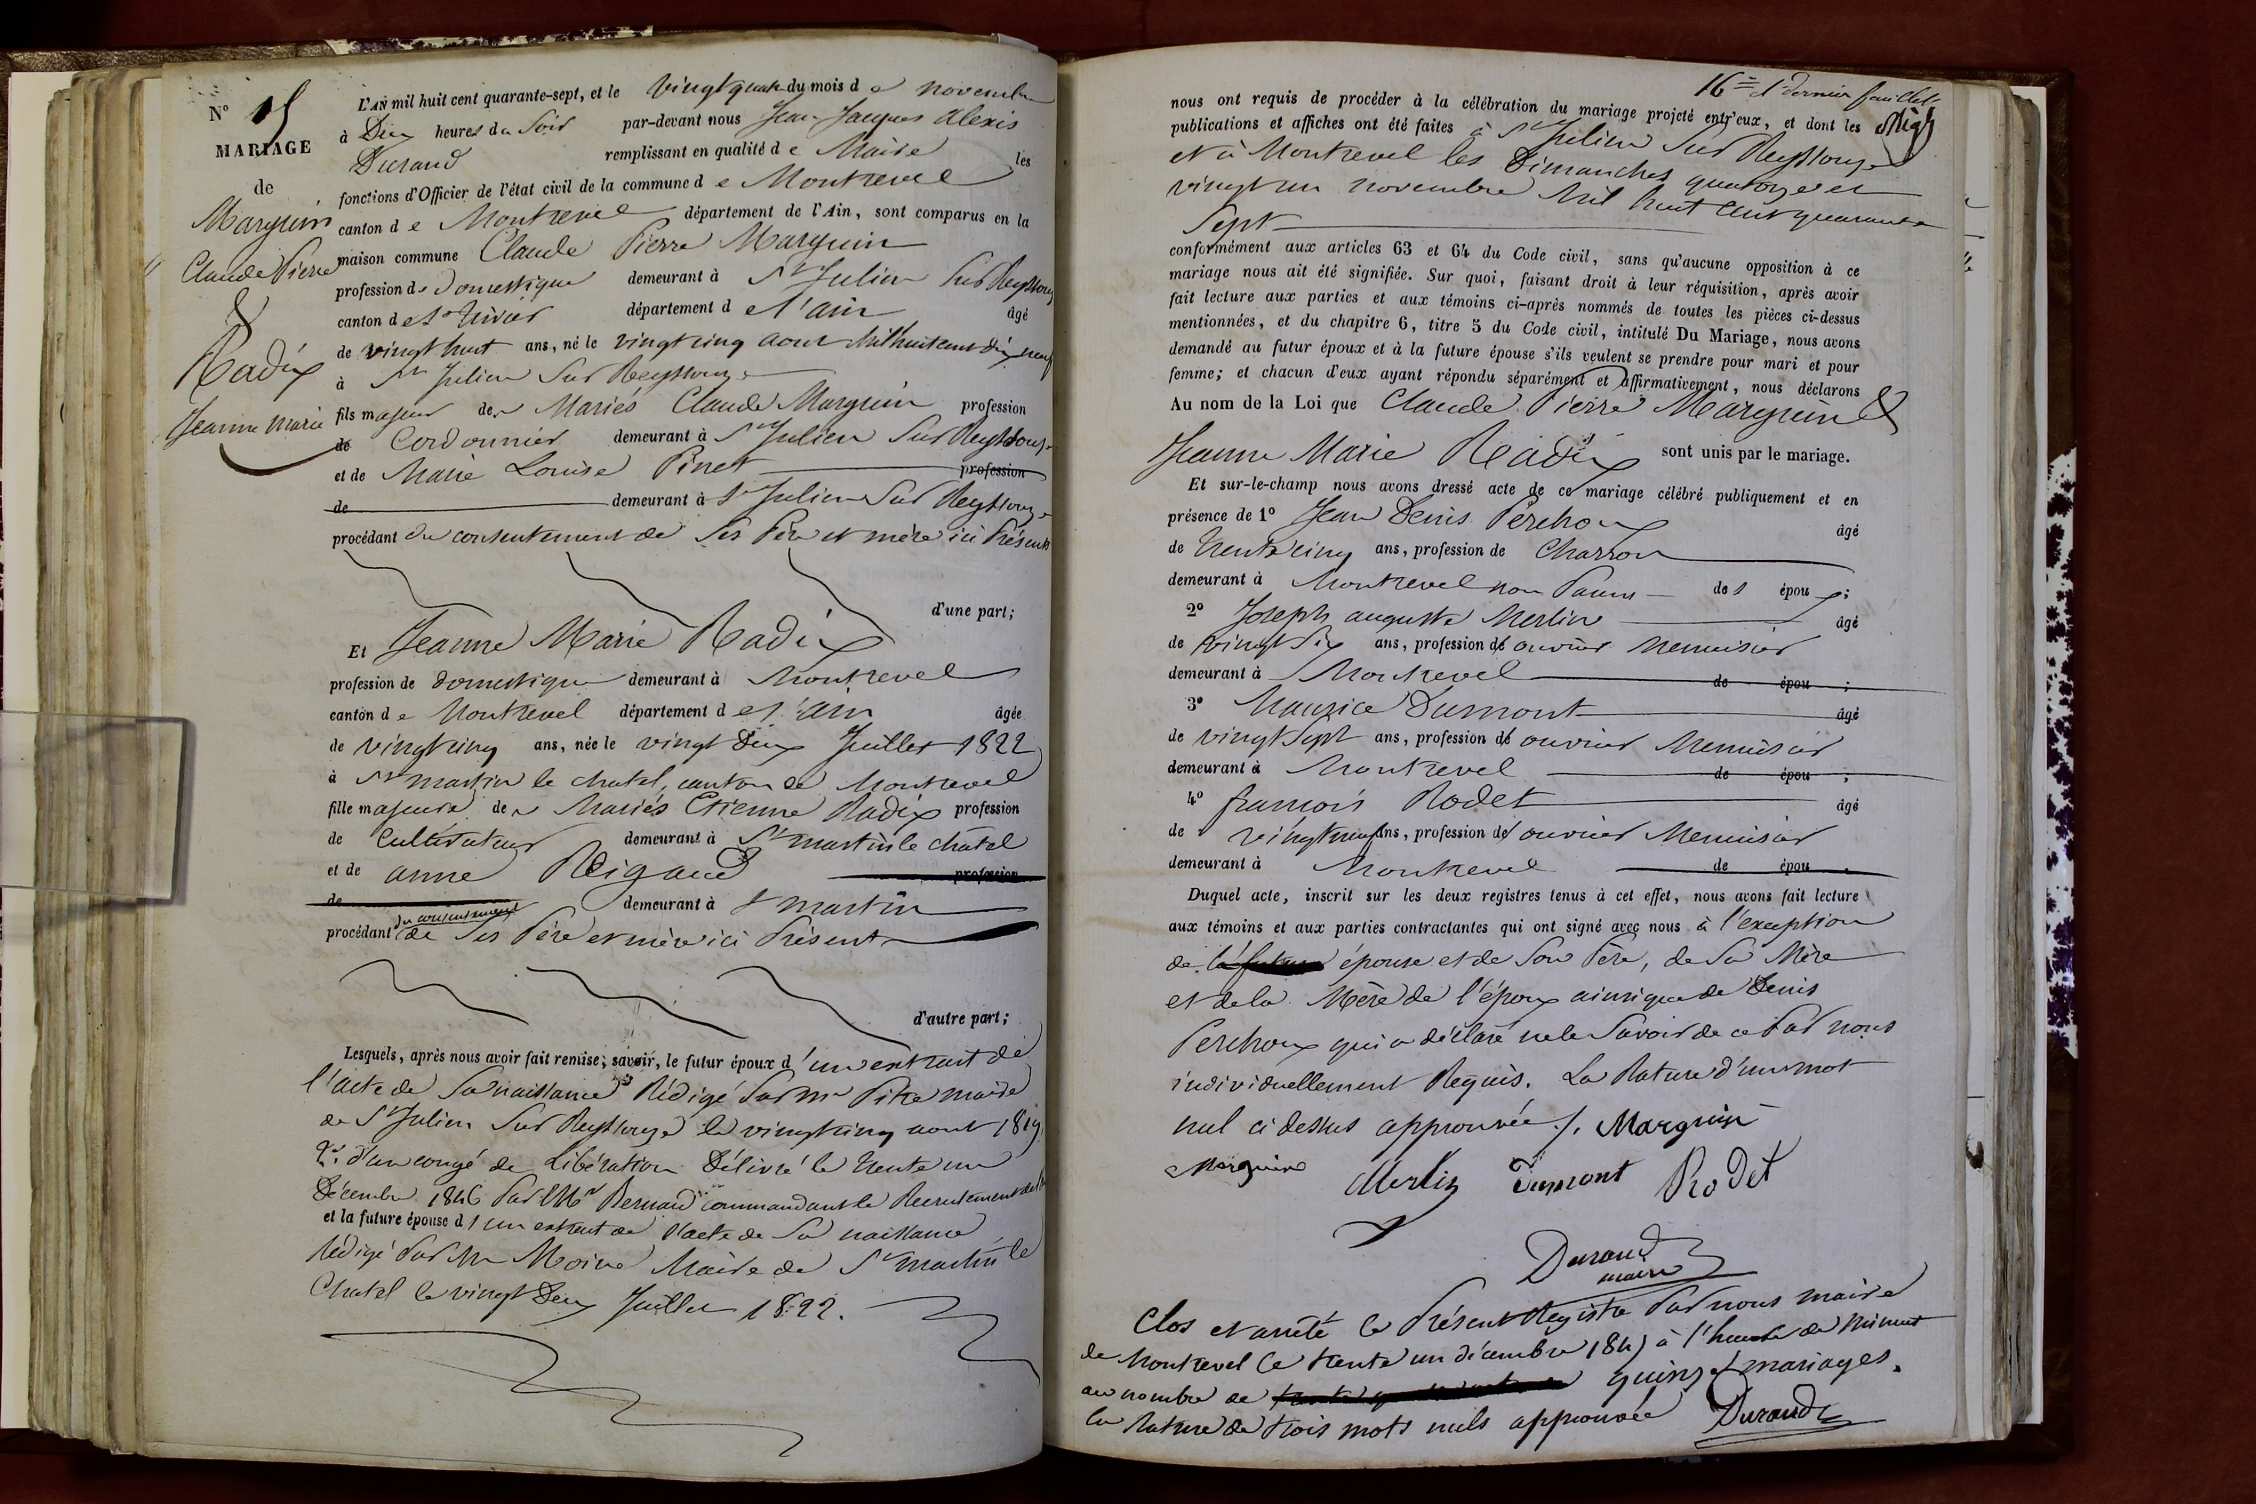 N° 15
MARIAGE
de
Marguin
Claude Pierre
&
Radix
Jeanne Marie
L'AN mil huit cent quarante-sept, et le vingt quatre du mois d e novembre
à Dix heures du Soir par-devant nous Jean Jacques Alexis
Durand remplissant en qualité d e Maire les
fonctions d'Officier de l'état civil de la commune d e Montrevel
canton d e Montrevel département de l'Ain, sont comparus en la
maison commune Claude Pierre Marguin
profession de Domestique demeurant à St Julien Sur Reyssouze
canton de St Trivier département d e l'ain âgé
de vingt huit ans, né le vingt cinq aout Mil huit cent dix neuf
à St Julien Sur Reyssouze
fils majeur des Mariés Claude Marguin profession
de Cordonnier demeurant à St Julien Sur Reyssouze
et de Marie Louise Pinet profession
de demeurant à St Julien Sur Reyssouze
procédant du consentement de Ses Père et mère ici Présents
d'une part;
Et Jeanne Marie Radix
profession de domestique demeurant à Montrevel
canton d e Montrevel département d e l'ain âgée
de vingt cinq ans, née le vingt Deux Juillet 1822
à St martin le chatel, canton de Montrevel
fille majeure des Mariés Etienne Radix profession
de Cultivateur demeurant à St martin le chatel
et de anne Reigaud profession
de demeurant à St martin
du consentement
procédant de Ses Père et mère ici Présents
d'autre part;
Lesquels, après nous avoir fait remise, savoir, le futur époux d 'un extrait de
l'acte de Sa naissance Rédigé Par Mr Pitre maire
de St Julien Sur Reyssouze le vingt cinq aout 1819
2° d'un congé de Libération Délivré le trente un
Décembre 1846 Par Mr Bernard commandant le Recrutement de l'ain
et la future épouse d' un extrait de l'acte de Sa naissance
Rédigé Par Mr Moine Maire de St martin le
Chatel le vingt Deux Juillet 1822.
16e et dernier feuillet
nous ont requis de procéder à la célébration du mariage projeté entr'eux, et dont les
publications et affiches ont été faites à St Julien Sur Reyssouze
et à Montrevel les Dimanches quatorze et
vingt un novembre Mil huit cent quarante
Sept
conformément aux articles 63 et 64 du Code civil, sans qu'aucune opposition à ce
mariage nous ait été signifiée. Sur quoi, faisant droit à leur réquisition, après avoir
fait lecture aux parties et aux témoins ci-après nommés de toutes les pièces ci-dessus
mentionnées, et du chapitre 6, titre 5 du Code civil, intitulé Du Mariage, nous avons
demandé au futur époux et à la future épouse s'ils veulent se prendre pour mari et pour
femme; et chacun d'eux ayant répondu séparément et affirmativement, nous déclarons
Au nom de la Loi que Claude Pierre Marguin &
Jeanne Marie Radix sont unis par le mariage.
Et sur-le-champ nous avons dressé acte de ce mariage célébré publiquement et en
présence de 1° Jean Denis Perchoux âgé
de trente cinq ans, profession de Charron
demeurant à Montrevel non Parent des époux;
2° Joseph auguste Merlin âgé
de vingt Six ans, profession de ouvrier Menuisier
demeurant à Montrevel de épou ;
3° Maurice Dumont âgé
de vingt Sept ans, profession de ouvrier Menuisier
demeurant à Montrevel de épou ;
4° françois Rodet âgé
de vingt neuf ans, profession de ouvrier Menuisier
demeurant à Montrevel de épou .
Duquel acte, inscrit sur les deux registres tenus à cet effet, nous avons fait lecture
aux témoins et aux parties contractantes qui ont signé avec nous à l'exception
de la future épouse et de Son Père, de Sa Mère
et de la Mère de l'époux ainsi que de Denis
Perchoux qui a déclaré ne le Savoir de ce Par nous
individuellement Requis. La Rature d'un mot
nul ci dessus approuvée /. Marguin
Marguin Merlin Dumont Rodet
Durand
maire
Clos et arrêté le Présent Registre Par nous maire
de Montrevel le trente un décembre 1847 à l'heure de Minuit
au nombre de quinze mariages.
la Rature de trois mots nuls approuvée Durand